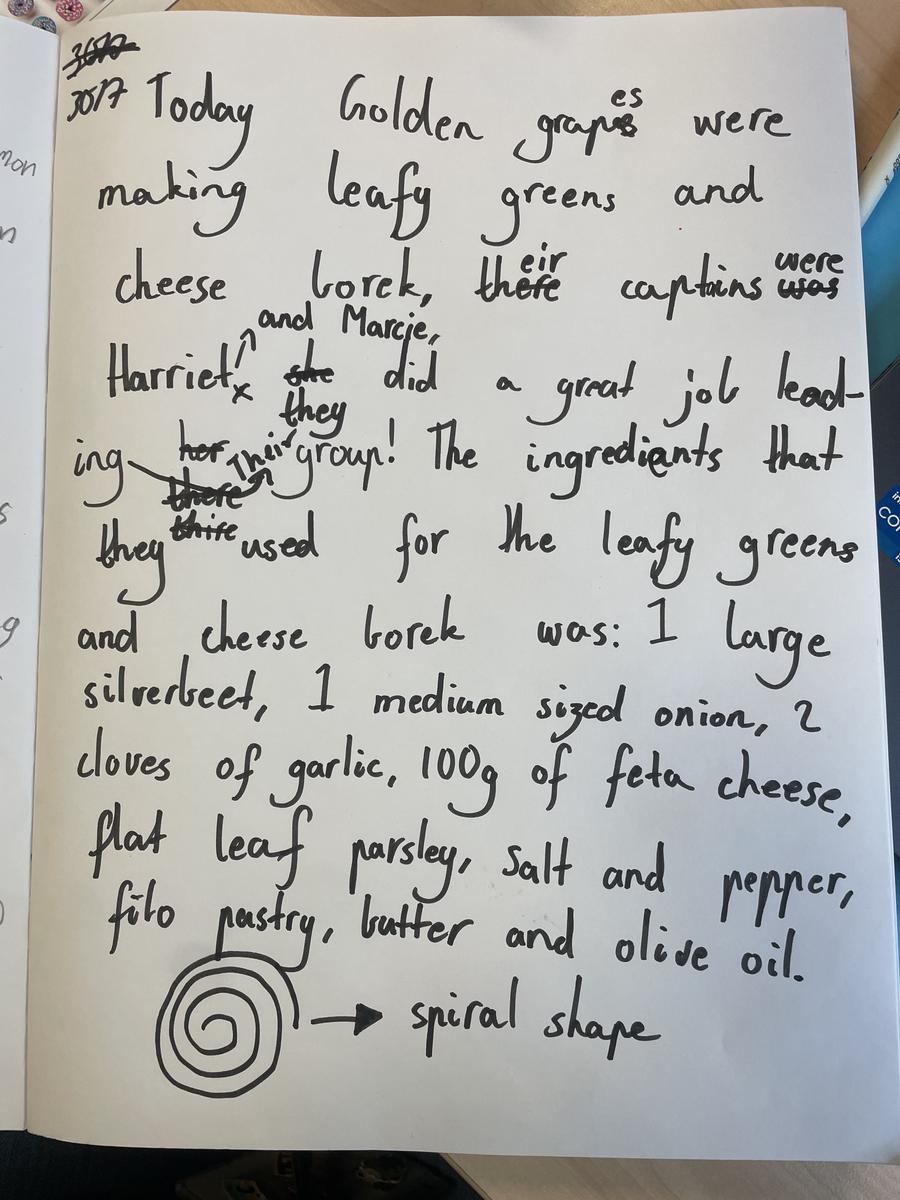 30/7 Today Golden grapes were
making leafy greens and
cheese borek, their captains were
Harriet, and Marcie,
they did a great job lead-
ing Thier group! The ingredients that
they used for the leafy greens
and cheese borek was: 1 large
silverbeet, 1 medium sized onion, 2
cloves of garlic, 100g of feta cheese,
flat leaf parsley, salt and pepper,
filo pastry, butter and olive oil.
→ spiral shape